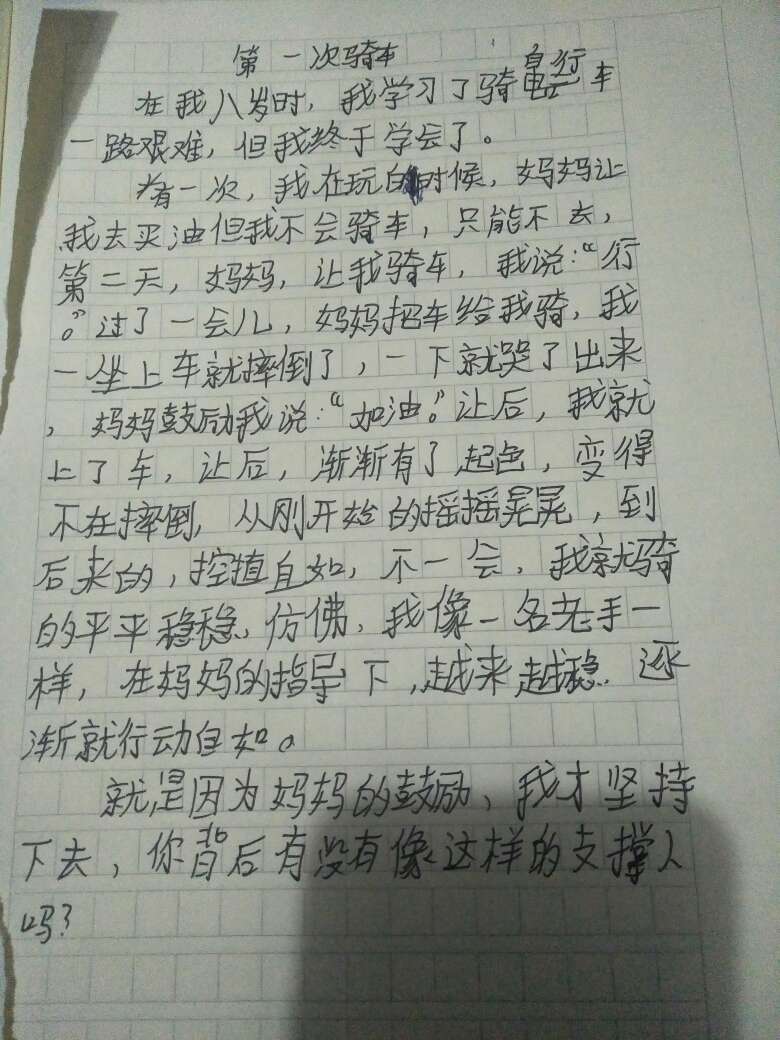 第一次骑车
在我八岁时，我学习了骑自行车
一路艰难，但我终于学会了。
有一次，我在玩的时候，妈妈让
我去买油但我不会骑车，只能不去，
第二天，妈妈，让我骑车，我说：“行
。”过了一会儿，妈妈把车给我骑，我
一坐上车就摔倒了，一下就哭了出来
，妈妈鼓励我说：“加油。”让后，我就
上了车，让后，渐渐有了起色，变得
不在摔倒，从刚开始的摇摇晃晃，到
后来的，控植自如，不一会，我就骑
的平平稳稳、仿佛，我像一名老手一
样，在妈妈的指导下，越来越稳 逐
渐就行动自如。
就是因为妈妈的鼓励、我才坚持
下去，你背后有没有像这样的支撑人
吗？